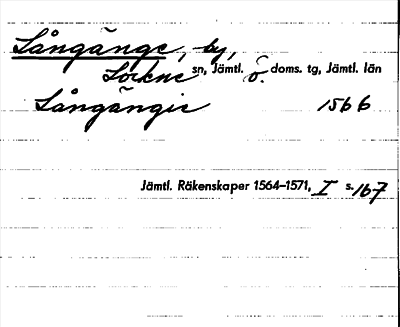 Långänge, by,
Lockne sn, Jämtl. ö. doms. tg, Jämtl. län
Långängie 1566
Jämtl. Räkenskaper 1564–1571, I s. 167